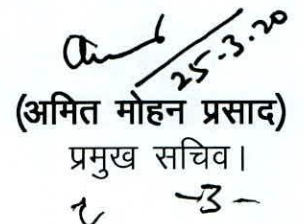 25.3.20
(अमित मोहन प्रसाद)
प्रमुख सचिव।
-3-